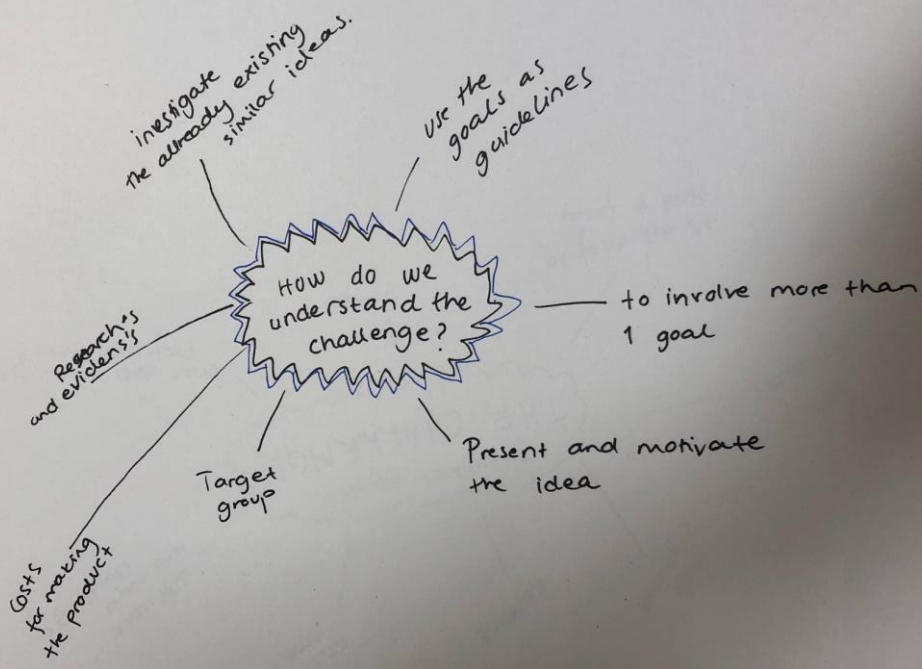 inestigate
the allready existing
similar ideas.
use the
goals as
guidelines
How do we
understand the
challenge?
to involve more than
1 goal
Present and motivate
the idea
Target
group
Costs
for making
the product
and evidens's